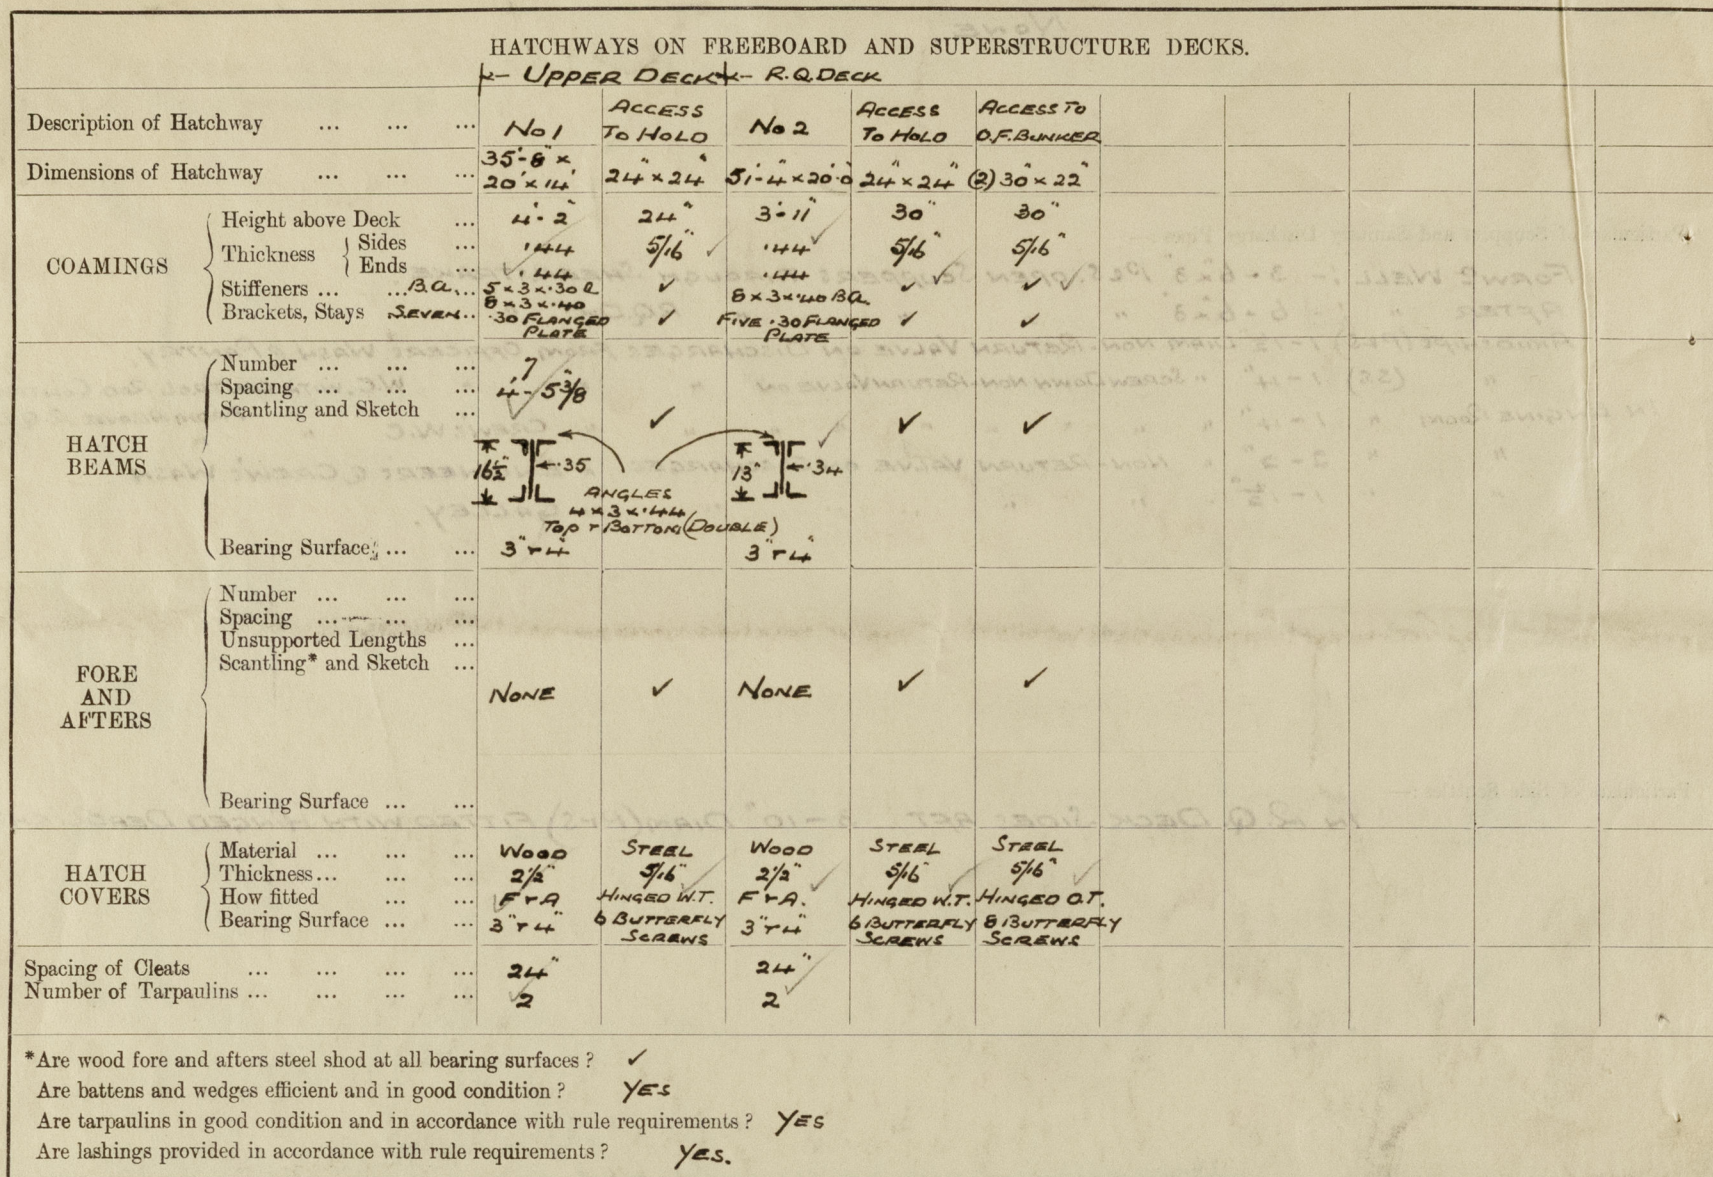 HATCHWAYS ON FREEBOARD AND SUPERSTRUCTURE DECKS.
UPPER DECK R.Q. DECK
Description of Hatchway ... ... ... No 1 ACCESS TO HOLD No 2 ACCESS TO HOLD ACCESS TO O.F. BUNKER
Dimensions of Hatchway ... ... ... 35'-8" x 20' x 14' 24" x 24" 51'-4" x 20'-0" 24" x 24" (2) 30" x 22"
COAMINGS
Height above Deck ... 4'-2" 24" 3'-11" 30" 30"
Thickness { Sides ... .44 5/16" ✓ .44 ✓ 5/16" 5/16"
Ends ... ✓ .44 .44 ✓
Stiffeners ... ... B.A. ... 5 x 3 x .30 8 x 3 x .40 ✓ 8 x 3 x .40 B.A. ✓ ✓ ✓
Brackets, Stays SEVEN .. .30 FLANGED PLATE ✓ FIVE .30 FLANGED PLATE ✓ ✓
HATCH BEAMS
Number ... ... ... 7
Spacing ... ... ... 4'-5 3/8
Scantling and Sketch ... ✓ ✓ ✓ ✓
16½" .35 13" .34 ✓
ANGLES
4 x 3 x .44
TOP & BOTTOM (DOUBLE)
Bearing Surface ... ... 3" & 4" 3" & 4"
FORE AND AFTERS
Number ... ... ...
Spacing ... ... ...
Unsupported Lengths ...
Scantling* and Sketch ...
NONE ✓ NONE ✓ ✓
Bearing Surface ... ...
HATCH COVERS
Material ... ... ... WOOD STEEL WOOD STEEL STEEL
Thickness ... ... ... 2½" 5/16" ✓ 2½" ✓ 5/16" ✓ 5/16" ✓
How fitted ... ... ✓ F & A HINGED W.T. F & A. HINGED W.T. HINGED O.T.
Bearing Surface ... ... 3" & 4" 6 BUTTERFLY SCREWS 3" & 4" 6 BUTTERFLY SCREWS 8 BUTTERFLY SCREWS
Spacing of Cleats ... ... ... 24" 24"
Number of Tarpaulins ... ... ... ... ✓ 2 2 ✓
*Are wood fore and afters steel shod at all bearing surfaces ? ✓
Are battens and wedges efficient and in good condition ? YES
Are tarpaulins in good condition and in accordance with rule requirements ? YES
Are lashings provided in accordance with rule requirements ? YES.